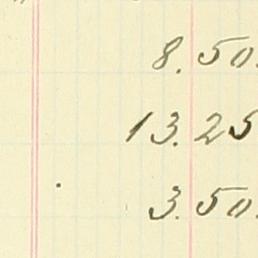 8.50
13.25
3.50